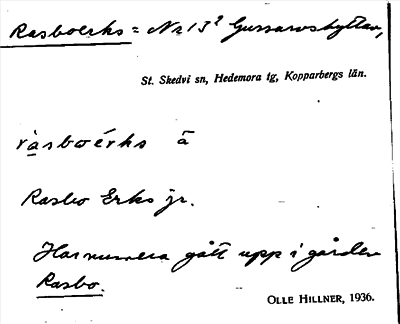 Rasboerks = Nr 13² Gussarvshyttan,
St. Skedvi sn, Hedemora tg, Kopparbergs län.
ràsboérks ä
Rasbo Erks jr.
Har numera gått upp i gården
Rasbo.
OLLE HILLNER, 1936.